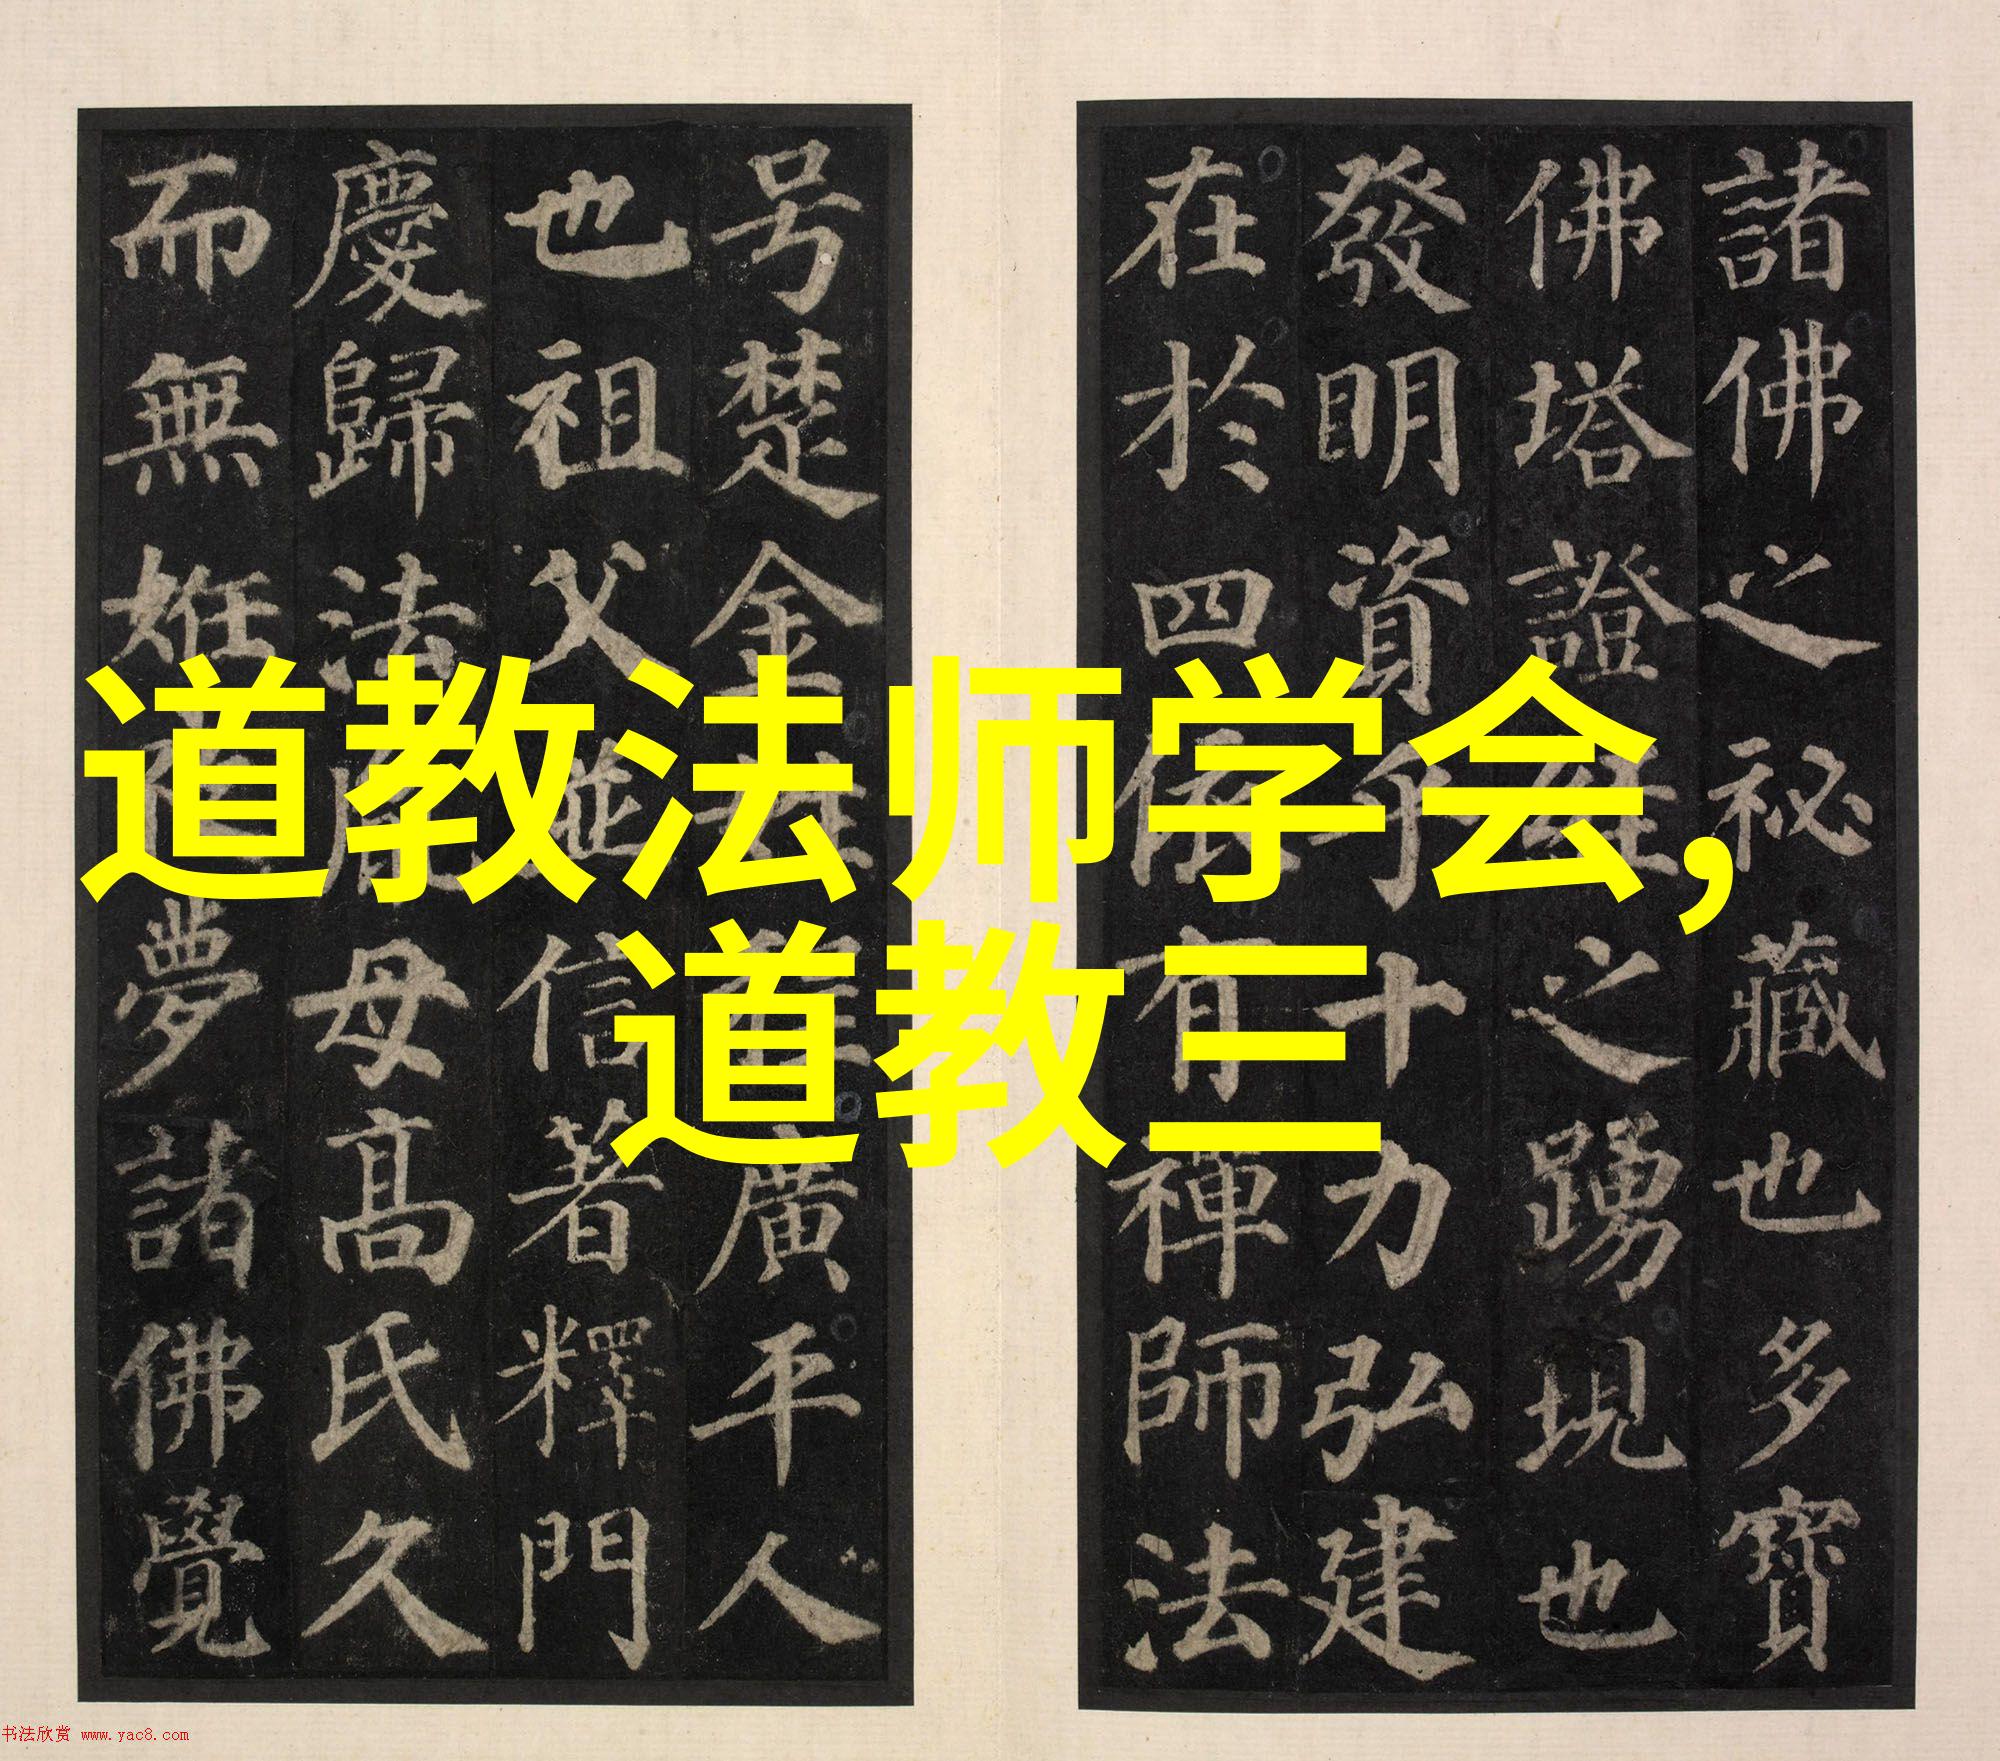 道教法师学会,
道教三
諸佛之祕藏也多寶
佛塔證經之踴現也
發明資乎十力弘建
在於四依有禪師法
号楚金姓程廣平人
也祖父並信著釋門
慶歸法胤母高氏久
而無姙夜夢諸佛覺
书法欣赏 www.yac8.com